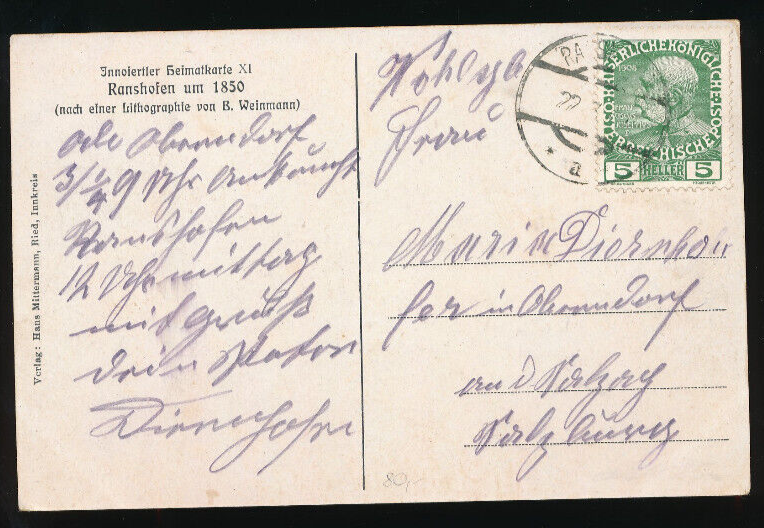 Innviertler Heimatkarte XI
Ranshofen um 1850
(nach einer Lithographie von B. Weinmann)
Verlag: Hans Mittermann, Ried, Innkreis
Oberndorf
3/4 9 Uhr Ankunft
Ranshofen
12 Uhr mittag
mit Gruß
dein
Wohlgeb
Frau
Maria Diernho
fer in Oberndorf
an d Salzach
Salzburg
KAISERLICHE KÖNIGLICHE
ÖSTERREICHISCHE POST
1908
5 HELLER 5
22
a
80,-